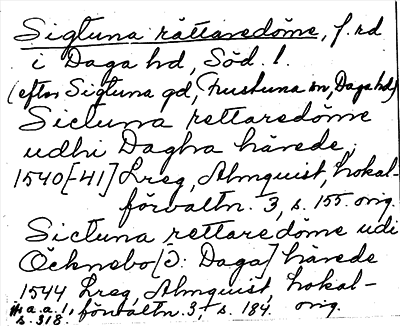 Sigtuna rättaredöme, f. rd
i Daga hd, Söd. l.
(efter Sigtuna gd, Frustuna sn, Daga hd)
Sictuna rettaredöme
udhi Dagha härede,
1540[-41] Lreg, Almquist, Lokal-
förvaltn. 3, s. 155. orig.
Sictuna rettaredöme udi
Öcknebo [ɔ: Daga] härede
1544, Lreg, Almquist, Lokal-
förvaltn. 3, s. 184, orig.
a. a. 1,
s. 318.